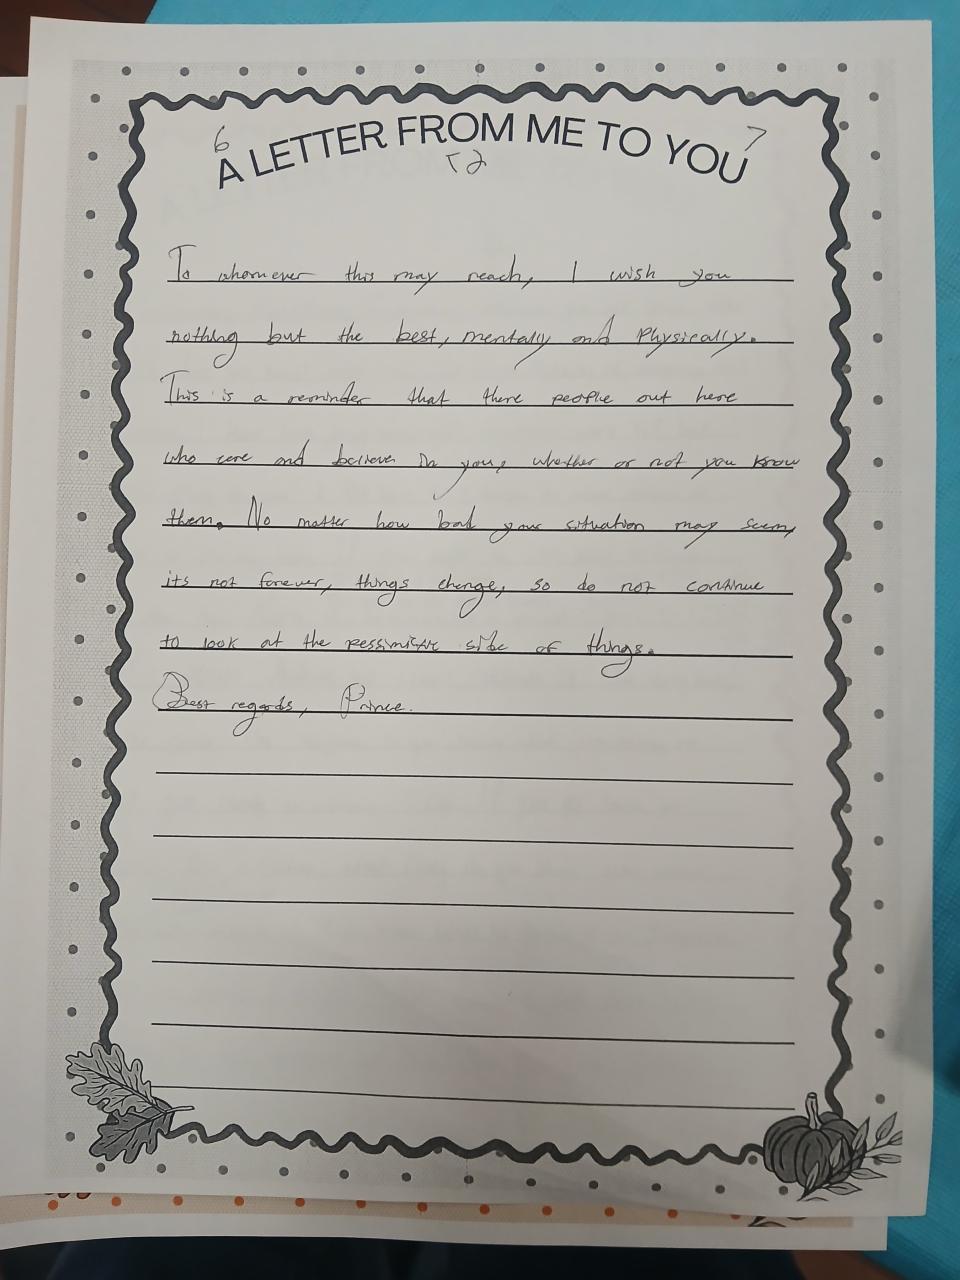 6 7
A LETTER FROM ME TO YOU
To whomever this may reach, I wish you
nothing but the best, mentally and Physically.
This is a reminder that there people out here
who care and believe in you, whether or not you know
them. No matter how bad your situation may seem,
its not forever, things change, so do not continue
to look at the side of things.
Best regards, Prince.